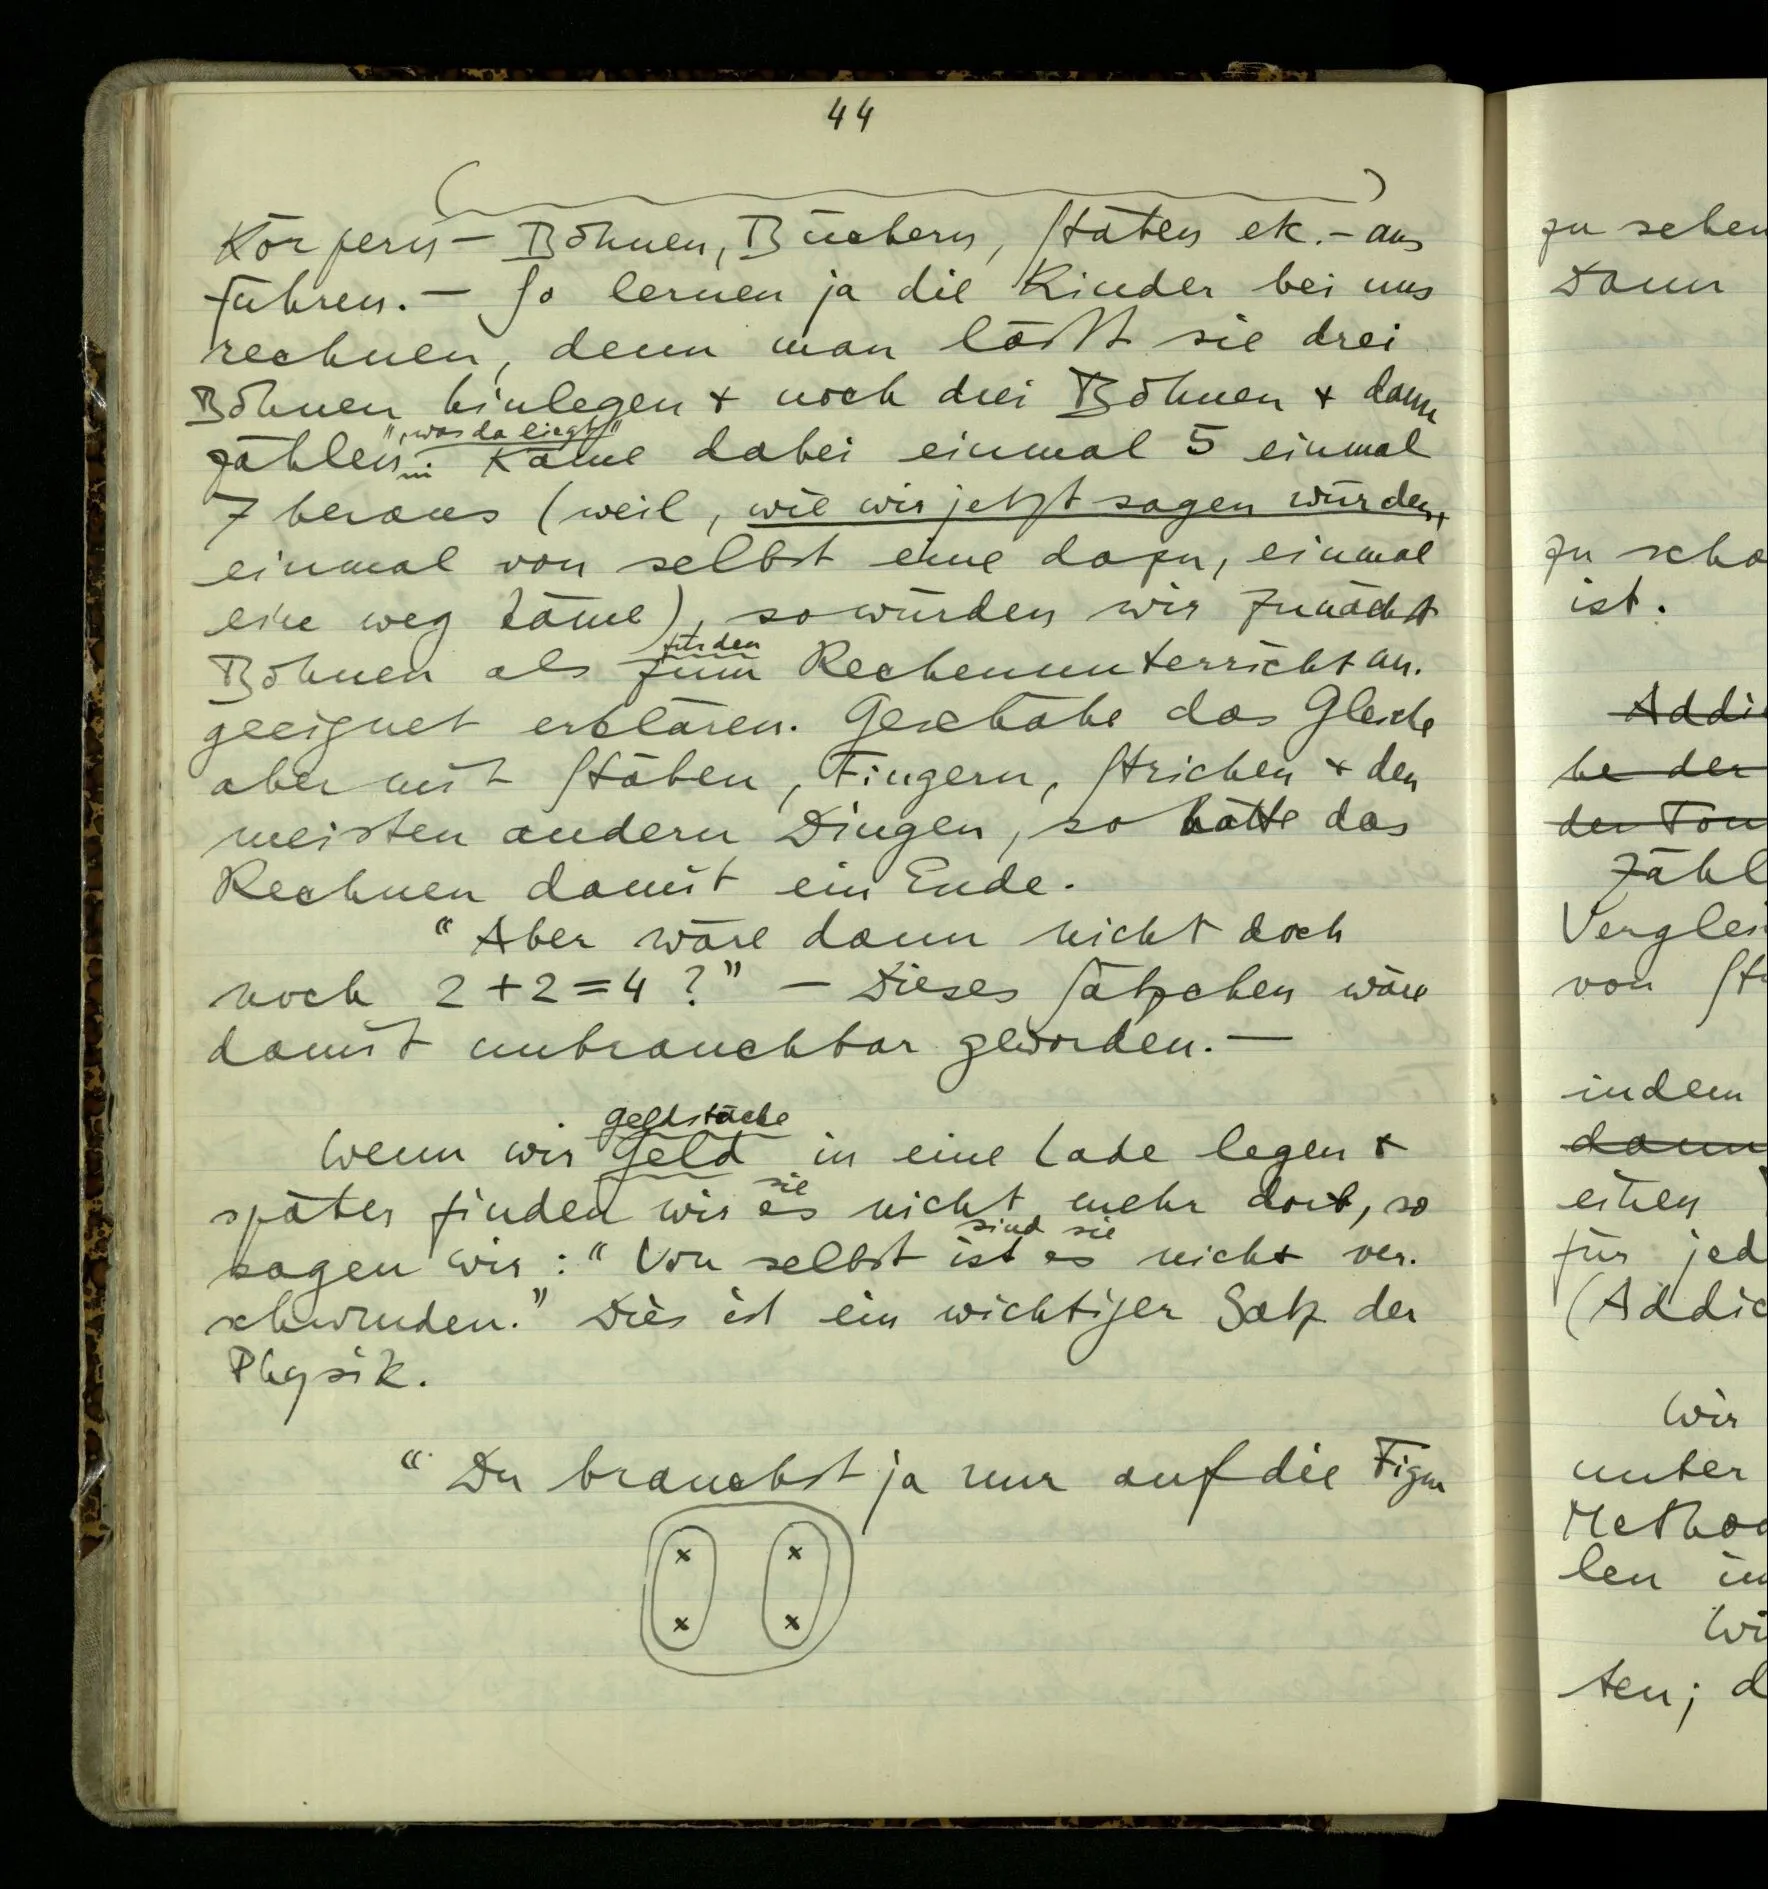 44
Körpern – Bohnen, Büchern, Stäben etc. – aus
führen. – So lernen ja die Kinder bei uns
rechnen, denn man läßt sie drei
Bohnen hinlegen + noch drei Bohnen + dann
", was da liegt"
zählen. Käme dabei einmal 5 einmal
7 heraus (weil, wie wir jetzt sagen würden,
einmal von selbst eine dazu, einmal
eine weg käme), so würden wir zunächst
für den
Bohnen als zum Rechenunterricht un.
geeignet erklären. Geschähe das Gleiche
aber mit Stäben, Fingern, Strichen + den
meisten andern Dingen, so hätte das
Rechnen damit ein Ende.
"Aber wäre dann nicht doch
noch 2+2=4?" – Dieses Sätzchen wäre
damit unbrauchbar geworden. –
Geldstücke
Wenn wir Geld in eine Lade legen +
sie
später finden wir es nicht mehr dort, so
sind sie
sagen wir: "Von selbst ist es nicht ver.
schwunden." Dies ist ein wichtiger Satz der
Physik.
"Du brauchst ja nur auf die Figur
x x
x x
zu sehen
Dann
zu scha
ist.
Addi
be der
der Ton
Zähl
Verglei
von St
indem
dann
einen
für jed
(Addic
Wir
unter
Method
len im
Wi
ten; d